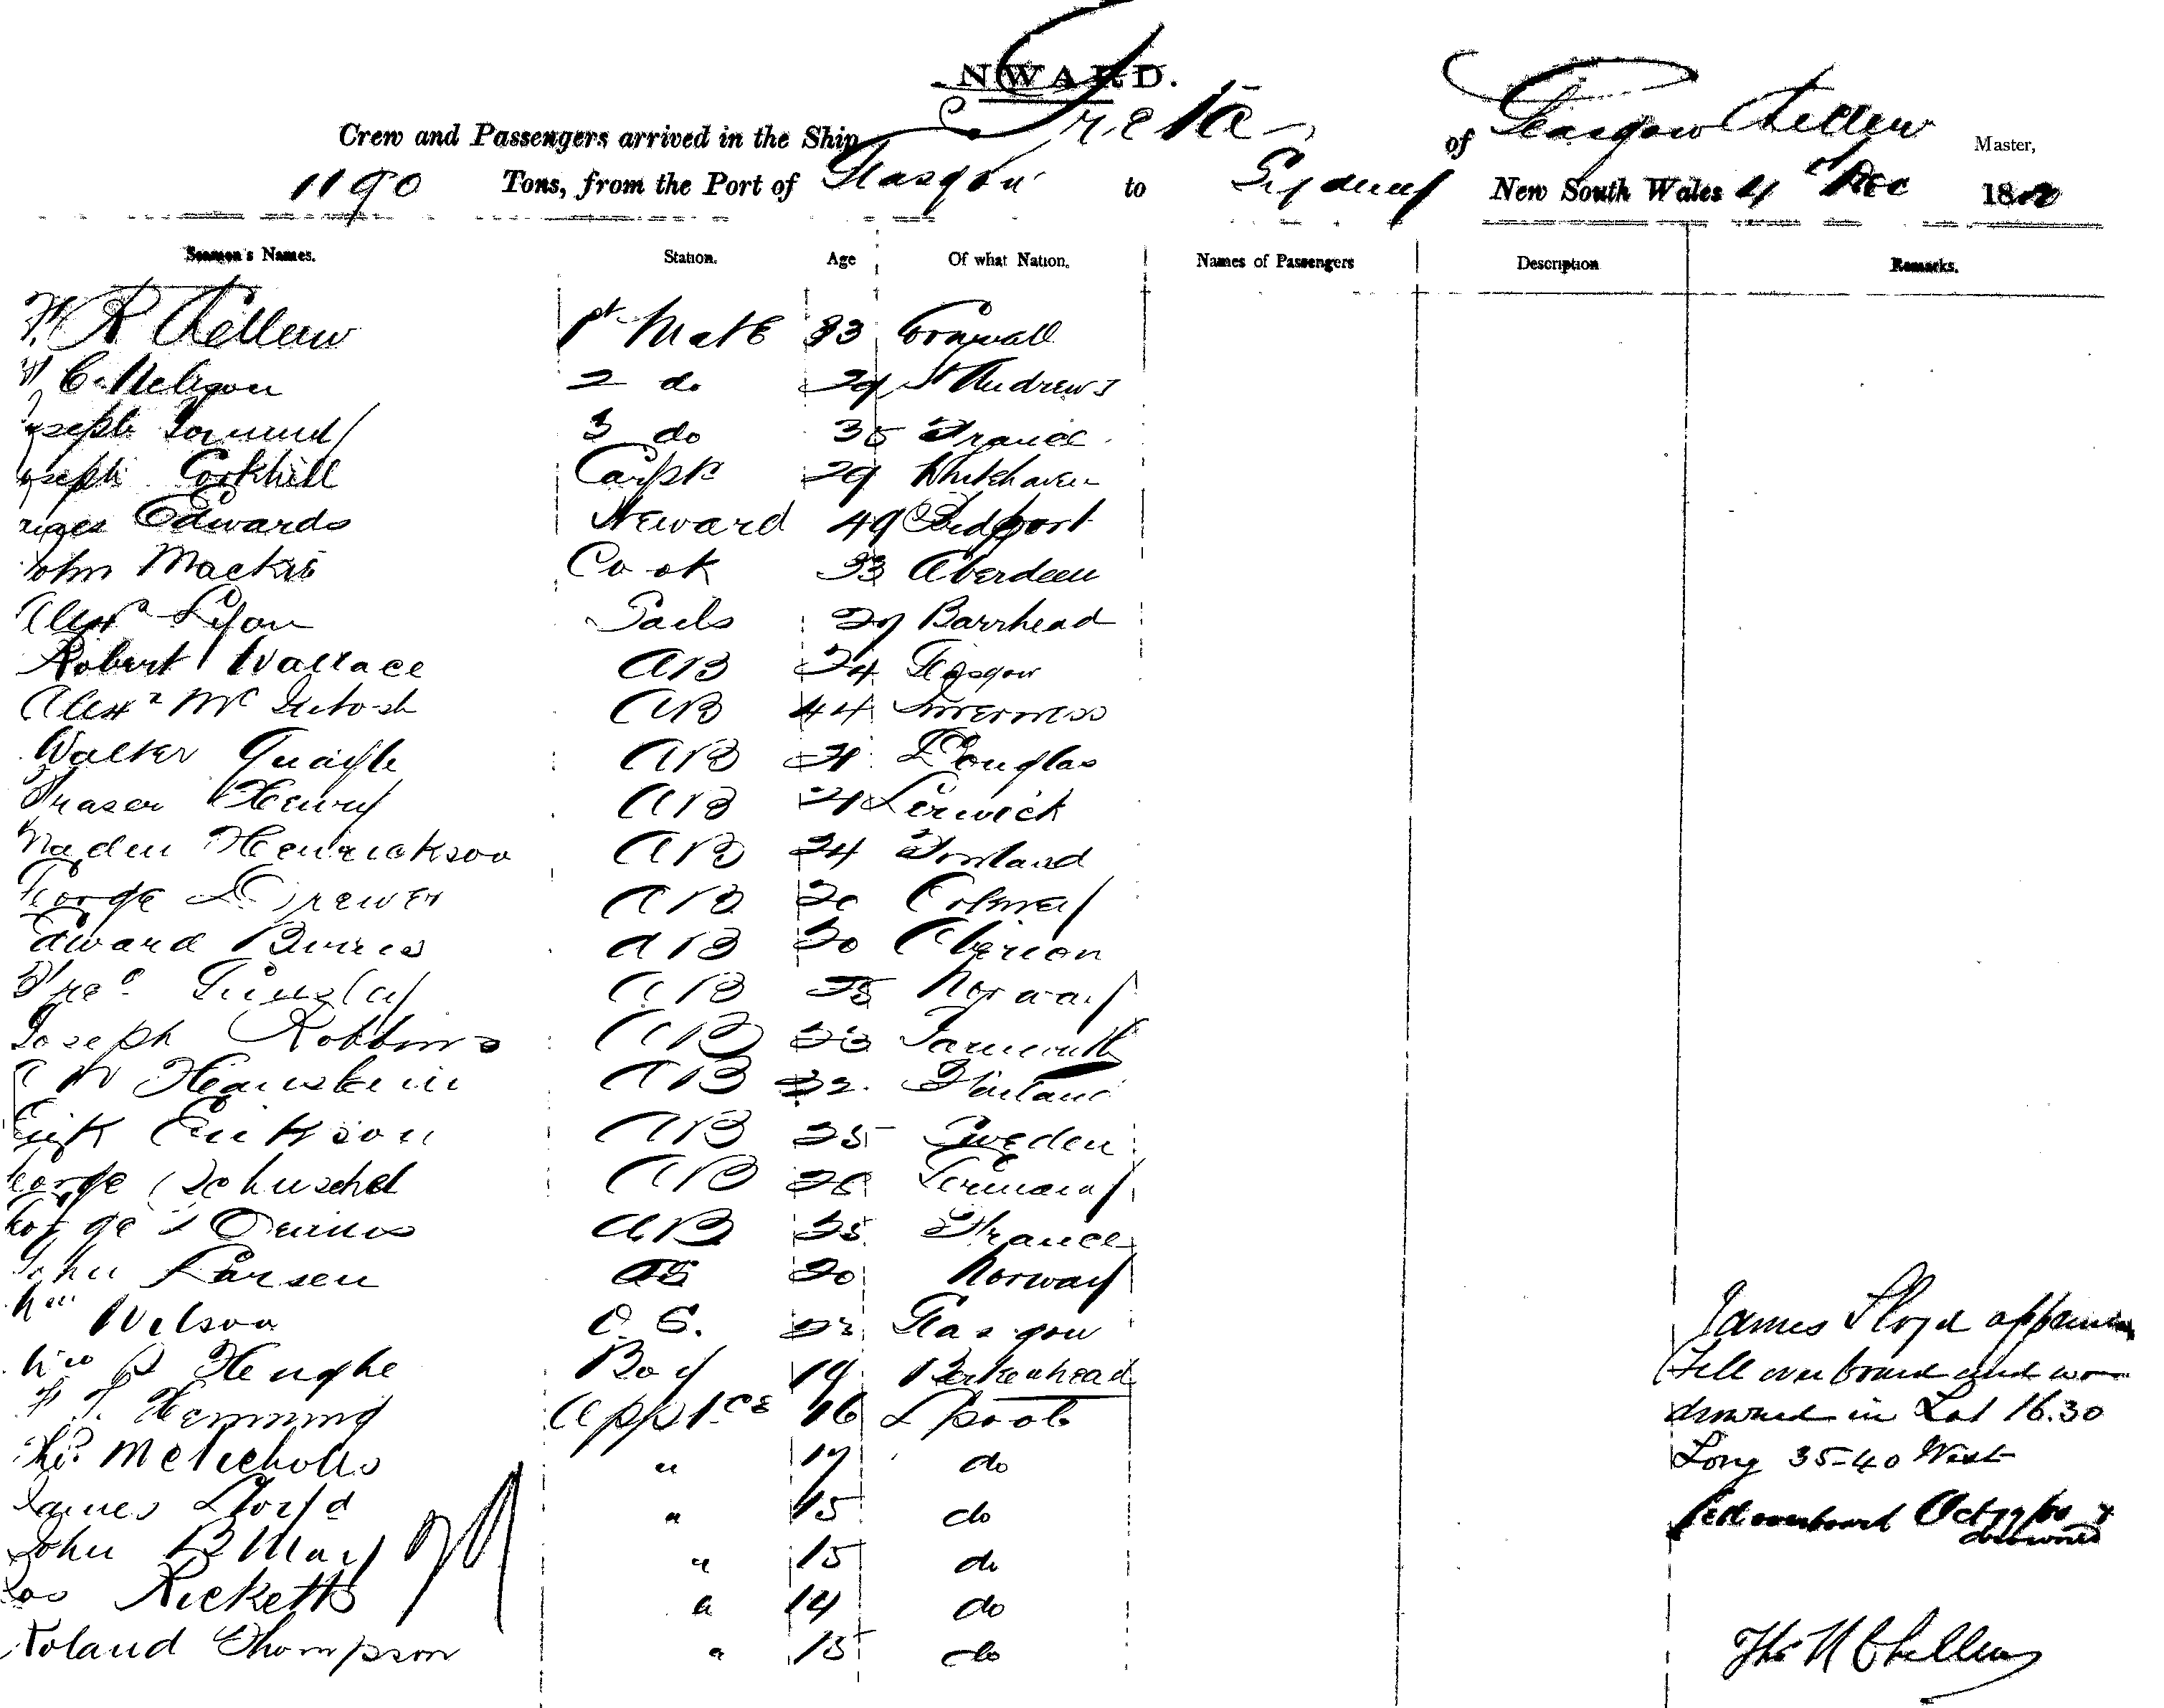 NWARD.
Crew and Passengers arrived in the Ship Greta of Glasgow Chellew Master,
1190 Tons, from the Port of Glasgow to Sydney New South Wales 4th Dec 1880
Seamen's Names. Station. Age Of what Nation. Names of Passengers Description Remarks.
R Chellew 1st Mate 33 Cornwall
C. Nelson 2 do 29 St Andrews
oseph 3 do 35 France
oseph Corkhill Carptr 29 Whitehaven
Edwards Steward 49 Bidport
John Mackie Cook 33 Aberdeen
Alexr Lyon Sails 29 Barrhead
Robert Wallace AB 24 Glasgow
Alexr McIntosh AB 44 Inverness
Walter Quayle AB 21 Douglas
Fraser Henry AB 21 Lerwick
Henrickson AB 24 Finland
George Brewer AB 20
Edward Burns AB 30
AB 25 Norway
Joseph Robbins AB 23 Yarmouth
AB 32 Finland
Erik Erikson AB 25 Sweden
eorge Schuschel AB 26 Germany
George AB 25 France
John Larsen AB 20 Norway
Wm Wilson O.S. 22 Glasgow
Wm B Hughe Boy 19 Birkenhead
Hemming Apptce 16 Lpool
Ths McNicholls " 17 do
James Lloyd " 15 do
John B May " 15 do
Ricketts " 14 do
Roland Thompson " 15 do
James Lloyd apprentice
fell overboard and was
drowned in Lat 16.30
Long 35-40 West
fell overboard Oct 19/80 &
drowned
Ths R Chellew